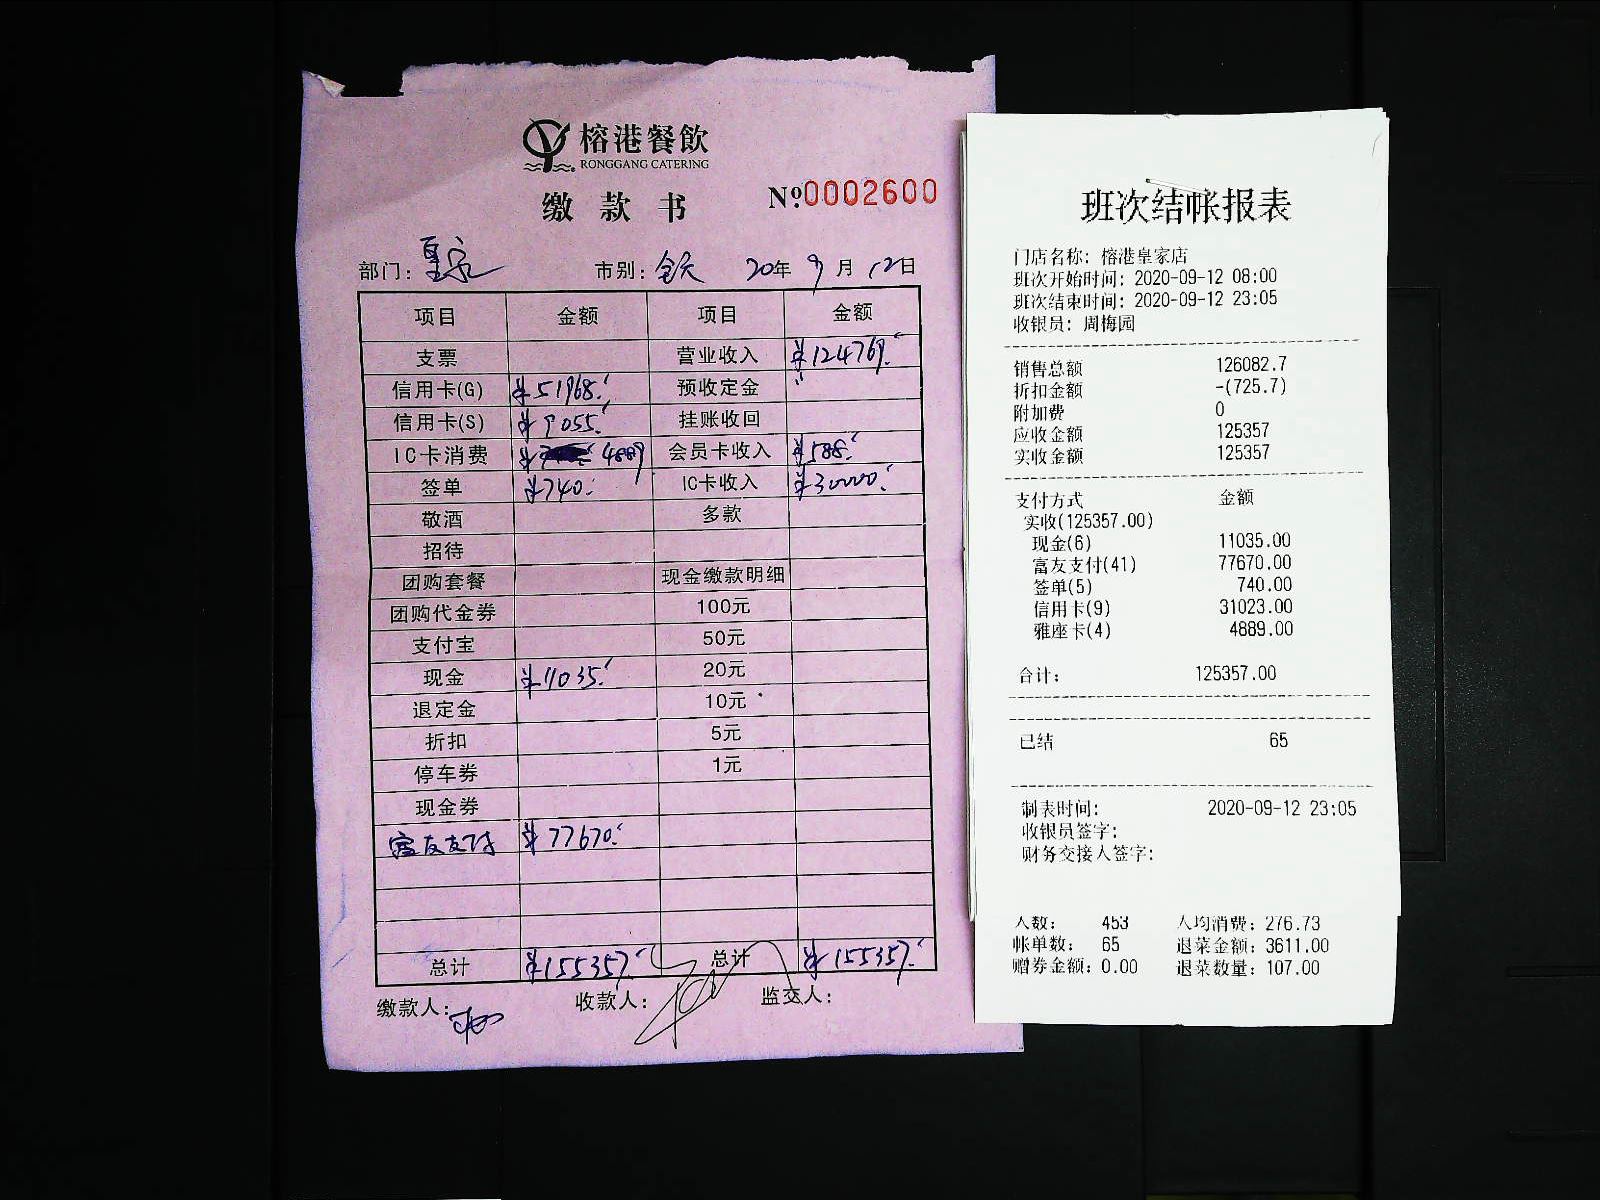 榕港餐飲
RONGGANG CATERING
缴款书
№0002600
部门：皇家 市别：全天 20年 9月 12日
项目 金额 项目 金额
支票 营业收入 ¥124769.
信用卡(G) ¥51968. 预收定金
信用卡(S) ¥9055. 挂账收回
IC卡消费 ¥ 4889 会员卡收入 ¥588.
签单 ¥740. IC卡收入 ¥30000.
敬酒 多款
招待
团购套餐 现金缴款明细
团购代金券 100元
支付宝 50元
现金 ¥11035. 20元
退定金 10元
折扣 5元
停车券 1元
现金券
富友支付 ¥77670.
总计 ¥155357. 总计 ¥155357.
缴款人： 收款人： 监交人：
班次结帐报表
门店名称: 榕港皇家店
班次开始时间: 2020-09-12 08:00
班次结束时间: 2020-09-12 23:05
收银员: 周梅园
销售总额 126082.7
折扣金额 -(725.7)
附加费 0
应收金额 125357
实收金额 125357
支付方式 金额
实收(125357.00)
现金(6) 11035.00
富友支付(41) 77670.00
签单(5) 740.00
信用卡(9) 31023.00
雅座卡(4) 4889.00
合计: 125357.00
已结 65
制表时间: 2020-09-12 23:05
收银员签字:
财务交接人签字:
人数: 453 人均消费: 276.73
帐单数: 65 退菜金额: 3611.00
赠券金额: 0.00 退菜数量: 107.00